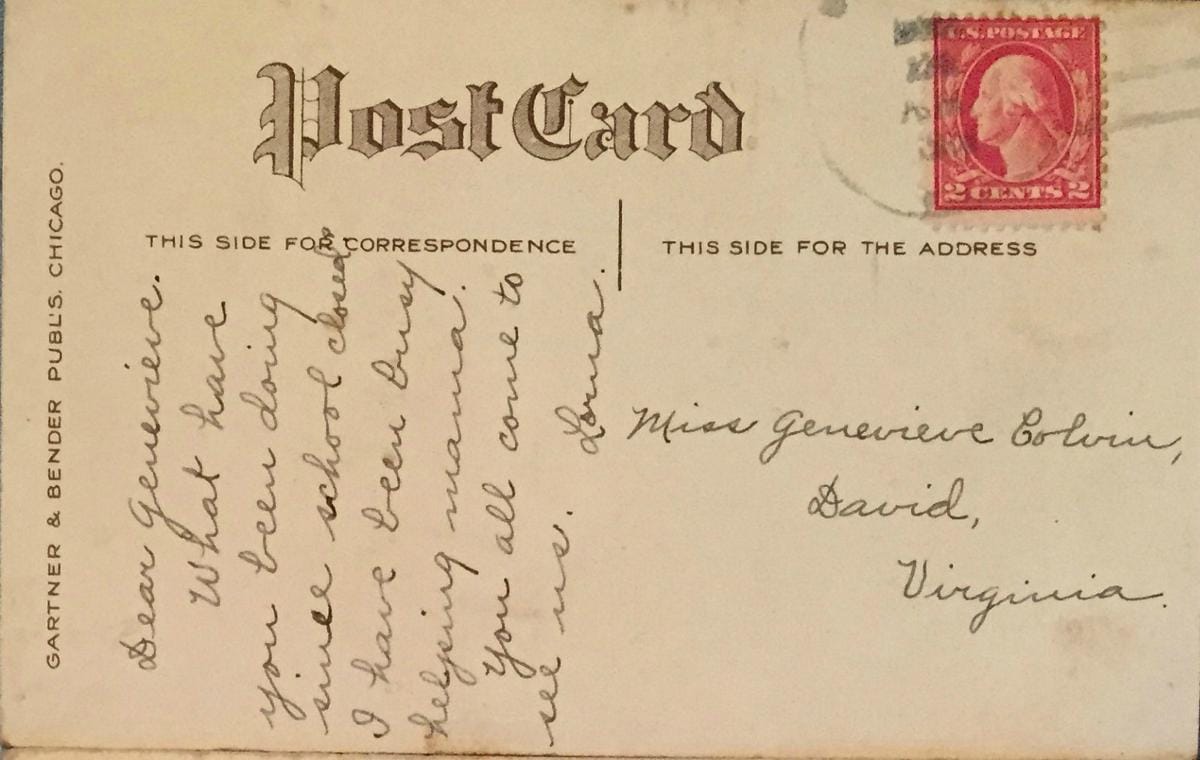 Post Card
THIS SIDE FOR CORRESPONDENCE
THIS SIDE FOR THE ADDRESS
GARTNER & BENDER PUBL'S. CHICAGO.
U.S. POSTAGE
2 CENTS 2
Dear Genevieve.
What have
you been doing
since school closed?
I have been busy
helping mama.
You all come to
see us.
Lorna.
Miss Genevieve Colvin,
David,
Virginia.